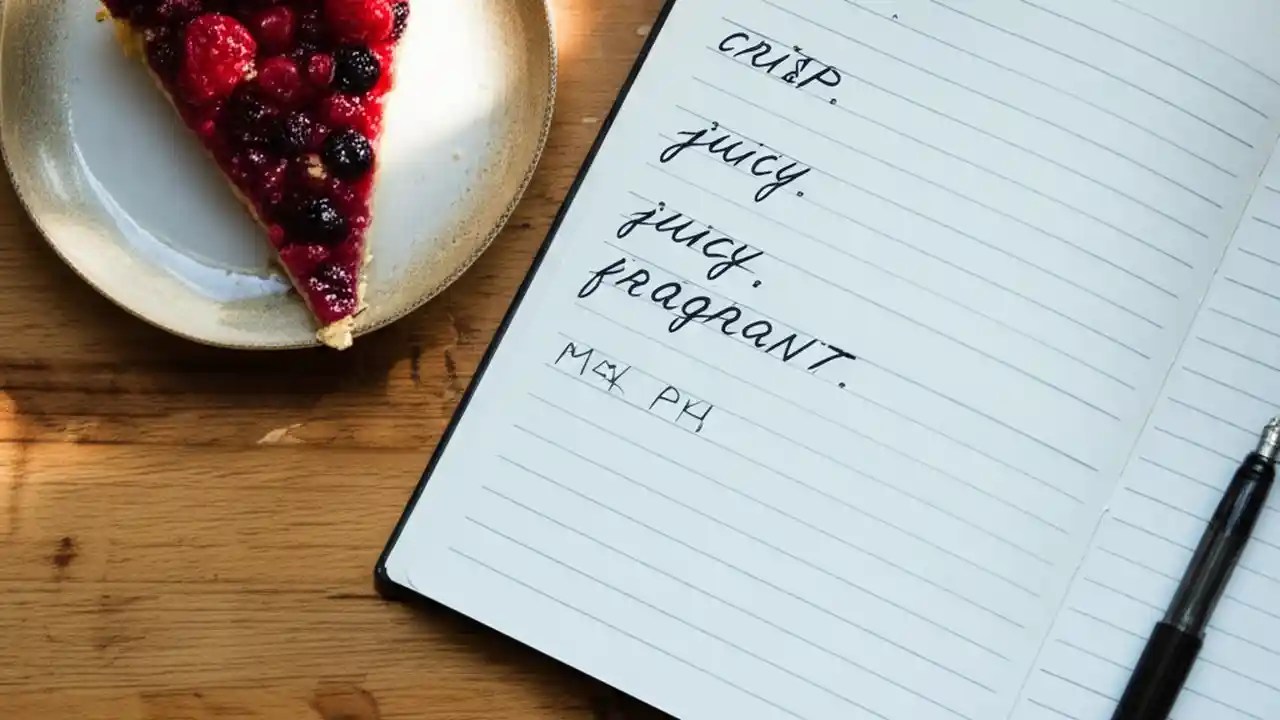 CRISP.
juicy.
juicy.
fRAGRANT.